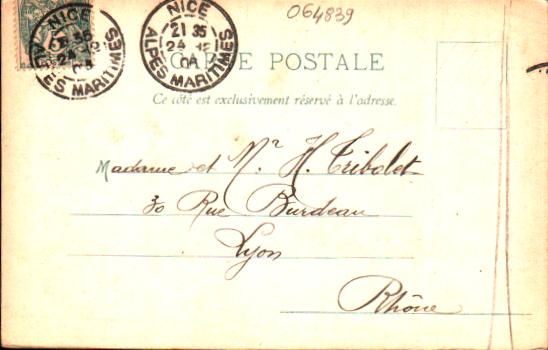 064839
NICE
21 35
24 12
04
ALPES MARITIMES
NICE
21 35
24 12
04
ALPES MARITIMES
CARTE POSTALE
Ce côté est exclusivement réservé à l'adresse.
Madame et Mr H. Tribolet
30 Rue Burdeau
Lyon
Rhône